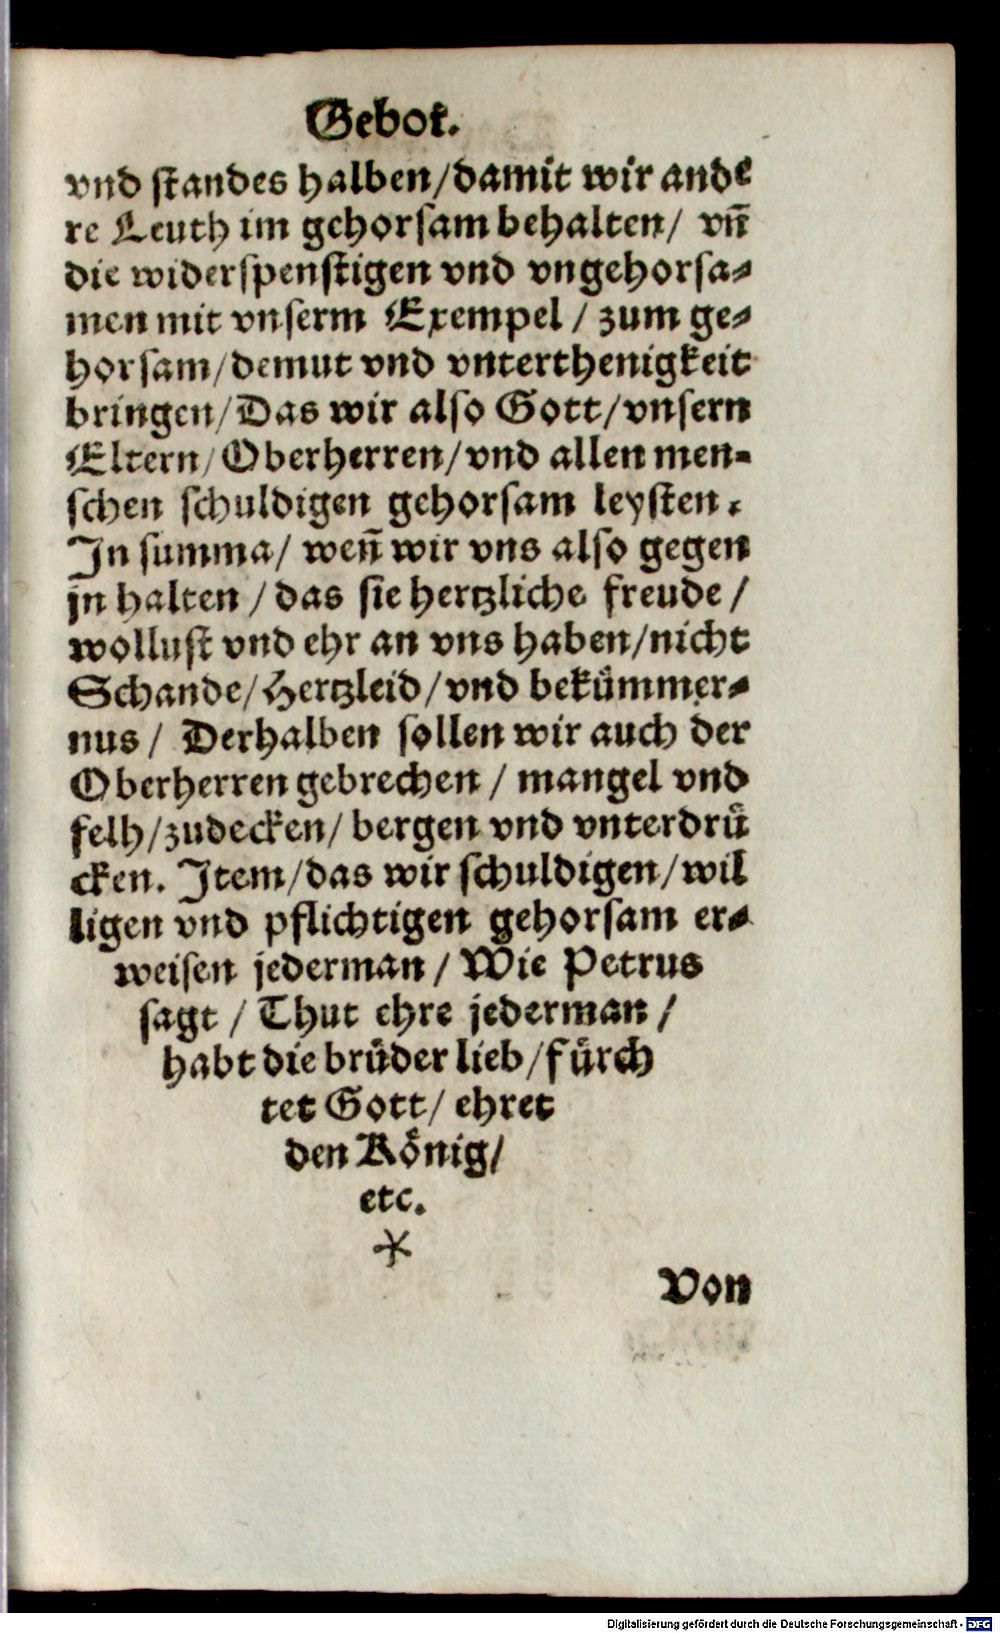 Gebot.
vnd standes halben/damit wir ande
re Leuth im gehorsam behalten/ vñ
die widerspenstigen vnd vngehorsa-
men mit vnserm Exempel / zum ge-
horsam/demut vnd vnterthenigkeit
bringen/Das wir also Gott/vnsern
Eltern/Oberherren/vnd allen men-
schen schuldigen gehorsam leysten.
In summa/ weñ wir vns also gegen
jn halten / das sie hertzliche freude /
wollust vnd ehr an vns haben/nicht
Schande/Hertzleid/vnd bekümmer-
nus / Derhalben sollen wir auch der
Oberherren gebrechen / mangel vnd
felh/zudecken/ bergen vnd vnterdrü
cken. Item/das wir schuldigen/wil
ligen vnd pflichtigen gehorsam er-
weisen jederman / Wie Petrus
sagt / Thut ehre jederman /
habt die brüder lieb/fürch
tet Gott/ ehret
den König/
etc.
*
Von
Digitalisierung gefördert durch die Deutsche Forschungsgemeinschaft - DFG